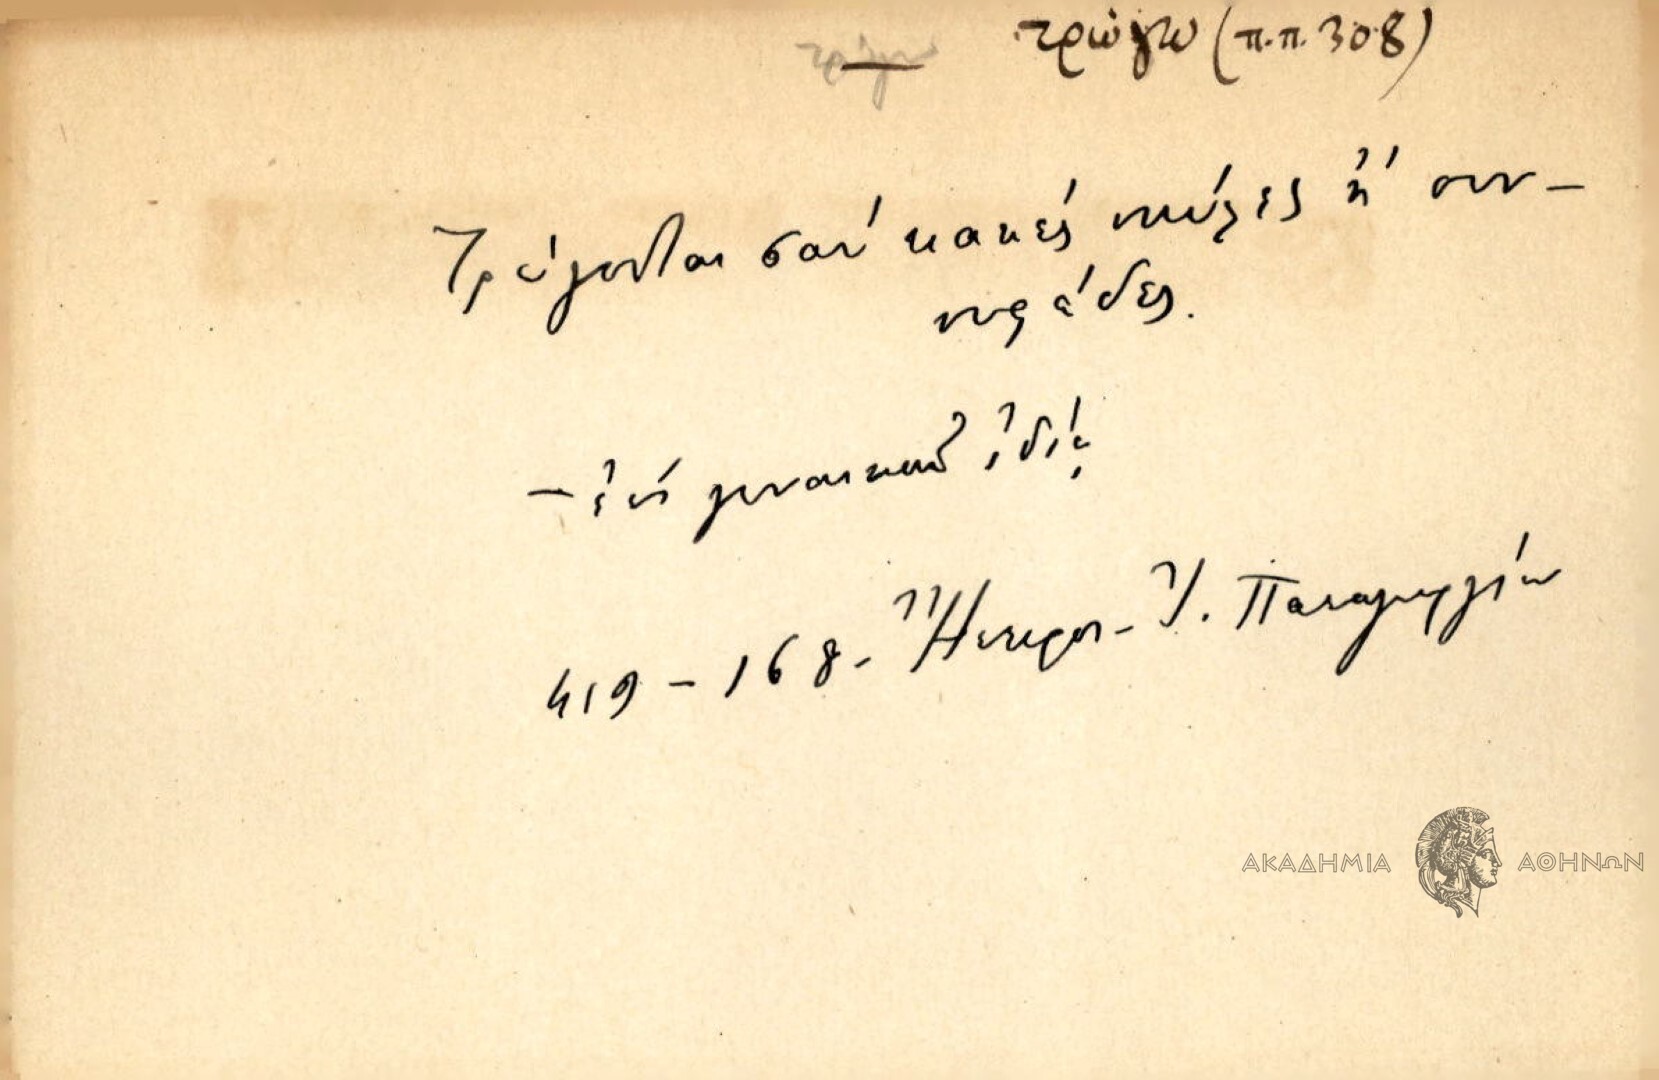 τρώγω τρώγω (π.π. 308)
Τρώγονται σαν κακές νύφες ἤ συν-
νυφάδες.
– ἐπί γυναικῶν ἰδίᾳ
419 – 168 – Ἤπειρος – Ἰ. Παπαγεωργίου
ΑΚΑΔΗΜΙΑ ΑΘΗΝΩΝ